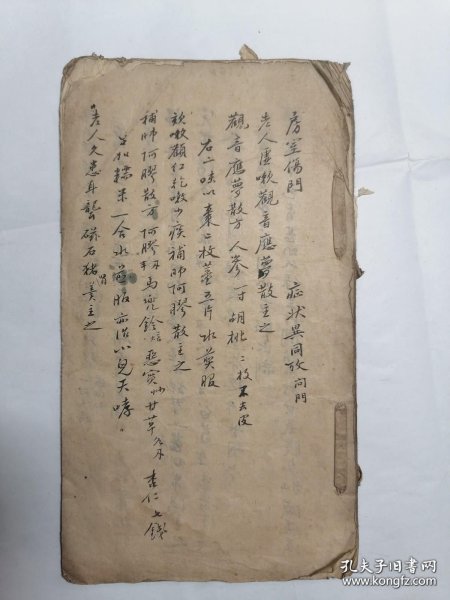 房室傷門 症狀異同攷問門
老人虛嗽觀音應夢散主之
觀音應夢散方 人參一寸 胡桃二枚不去皮
右二味以棗二枚薑五片水煎服
欬嗽顴紅乾嗽少痰補肺阿膠散主之
補肺阿膠散方 阿膠 馬兜鈴 惡實 甘草 杏仁七錢
糯米一合水煎服亦治小兒天哮
老人久患耳聾磁石猪腎羹主之
孔夫子旧书网
www.kongfz.com